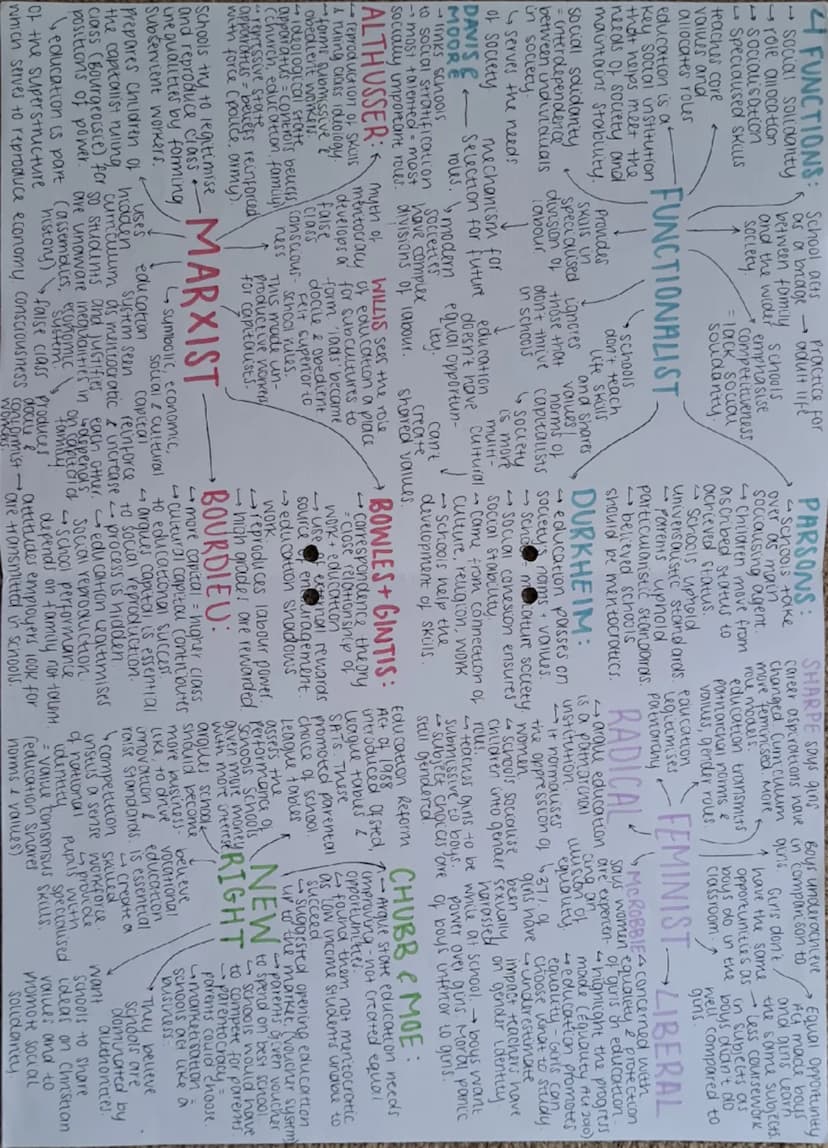 4 FUNCTIONS:
→ social solidarity
→ role allocation
→ socialisation
→ specialised skills
School acts
as a bridge
between family
and the wider
society
Practice for
adult life
teaches core
values and
allocates roles
schools
emphasise
competitiveness
= lack social
solidarity
education is a
key social institution
that helps meet the
needs of society and
maintains stability.
FUNCTIONALIST
social solidarity
= interdependence
between individuals
in society.
↳ serves the needs
of society
Provides
skills in
specialised
division of
labour
schools
don't teach
life skills
ignores
those that
don't thrive
in schools
and shares
values/
norms of
capitalists
↳ society
is more
multi-
cultural
can't
create
shared values.
mechanism for
selection for future
roles.
↳ modern
societies
have complex
divisions of labour.
education
doesn't have
equal opportun-
ity.
DAVIS &
MOORE
→ links schools
to social stratification
→ most talented = most
socially important roles.
PARSONS:
↳ schools move
over as main
socialising agent.
→ children move from
ascribed status to
achieved status.
↳ schools uphold
universalistic standards.
→ Parents uphold
particularistic standards.
→ believed schools
should be meritocratics.
DURKHEIM:
→ education passes on
society's norms + values.
miniature society
→ social cohesion ensures
social stability.
→ came from connection of
culture, religion, work
→ schools help the
development of skills.
ALTHUSSER:
→ reproduction of skills
& ruling class ideology.
→ forms submissive &
obedient workers.
→ ideological state
apparatus = controls beliefs
(church, education, family)
→ repressive state
apparatus = beliefs reinforced
with force (police, army).
myth of
meritocracy
develops a
false
class
conscious-
ness
WILLIS sees the role
of education a place
for subcultures to
form. 'lads' became
docile & obedient
felt superior to
school rules.
This made un-
productive workers
for capitalists.
Schools try to legitimise
and reproduce class
inequalities by forming
subservient workers.
MARXIST
Prepares children of
the capitalist ruling
class (Bourgeoisie) for
positions of power.
↳ education is part
of the superstructure
which serves to reproduce economy
uses
hidden
curriculum
so students
are unaware
(assemblies,
history)
education
system seen
as meritocratic
and justifies
inequalities in
economic
system
↳ false class
consciousness
↳ symbolic, economic,
social & cultural
capital
reinforce
& increase
each other.
↳ depend
on cultural
family
produces
docile &
conformist
workers
BOWLES + GINTIS:
→ correspondence theory
= close relationship of
work + education
rewards
source of encouragement.
→ education shadows
work
→ reproduces labour power,
→ high grades are rewarded
BOURDIEU:
→ more capital = higher class
→ cultural capital contributes
to educational success
→ argues capital is essential
to social reproduction.
→ process is hidden
↳ education legitimises
social reproduction
↳ school performance
depend on family not talent.
attitudes employers look for
→ are transmitted in schools
SHARPE says girls
career aspirations have
changed. Curriculum
more feminised. More
role models.
Boys underachieve
in comparison to
girls
Equal opportunity
Act made boys
and girls learn
the same subjects
→ less coursework
in subjects as
boys didn't do
well compared to
girls.
Girls don't
have the same
opportunities as
boys do in the
classroom
education transmits
patriarchal norms &
values, gender roles.
education
legitimises
patriarchy
FEMINIST → LIBERAL
RADICAL
→ argue education
is a patriarchal
institution.
→ it normalises
the oppression of
women
→ schools socialise
children into gender
roles.
→ teaches girls to be
submissive to boys.
→ subject choices are
still gendered
↳ MCROBBIE
saw women
are experien-
cing an
illusion of
equality
↳ 37% of
girls have
been
sexually
harassed
while at school. → boys want
power over girls. Moral panic
of boys inferior to girls.
↳ concerned with
equality & protection
of girls in education.
→ highlight the progress
made (Equality Act 2010)
→ education promotes
equality - girls can
choose what to study
→ underestimate
impact teachers have
on gender identity
Education Reform
Act of 1988
introduced Ofsted
league tables &
SATs. These
promoted parental
choice of school.
CHUBB & MOE:
→ Argue state education needs
improving - not created equal
opportunities.
↳ found them not meritocratic
as low income students unable to
succeed
→ suggested opening education
up to the market (voucher system)
→ parents given voucher
to spend on best school.
↳ schools would have
to compete for parents
NEW
RIGHT
league tables
assess the
performance of
schools. Schools
given more money
with more interest
→ parentocracy =
parents could choose
→ marketisation =
schools act like a
business.
argues schools
should become
more business-
like, to drive
innovation &
raise standards.
believe
vocational
education
is essential
→ create a
skilled
workforce.
→ provide
pupils with
specialised
skills.
↳ competition
instils a sense
of national
identity
= value consensus
(education shares
norms & values)
They believe
schools are
dominated by
authorities.
want
schools to share
ideas on Christian
values and to
promote social
solidarity